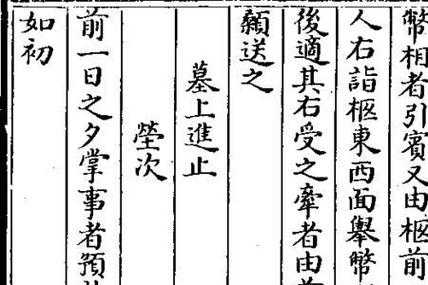 幣相者引賓又由柩前
人右詣柩東西面舉幣
後適其右受之牽者由前
顙送之
墓上進止
塋次
前一日之夕掌事者預
如初